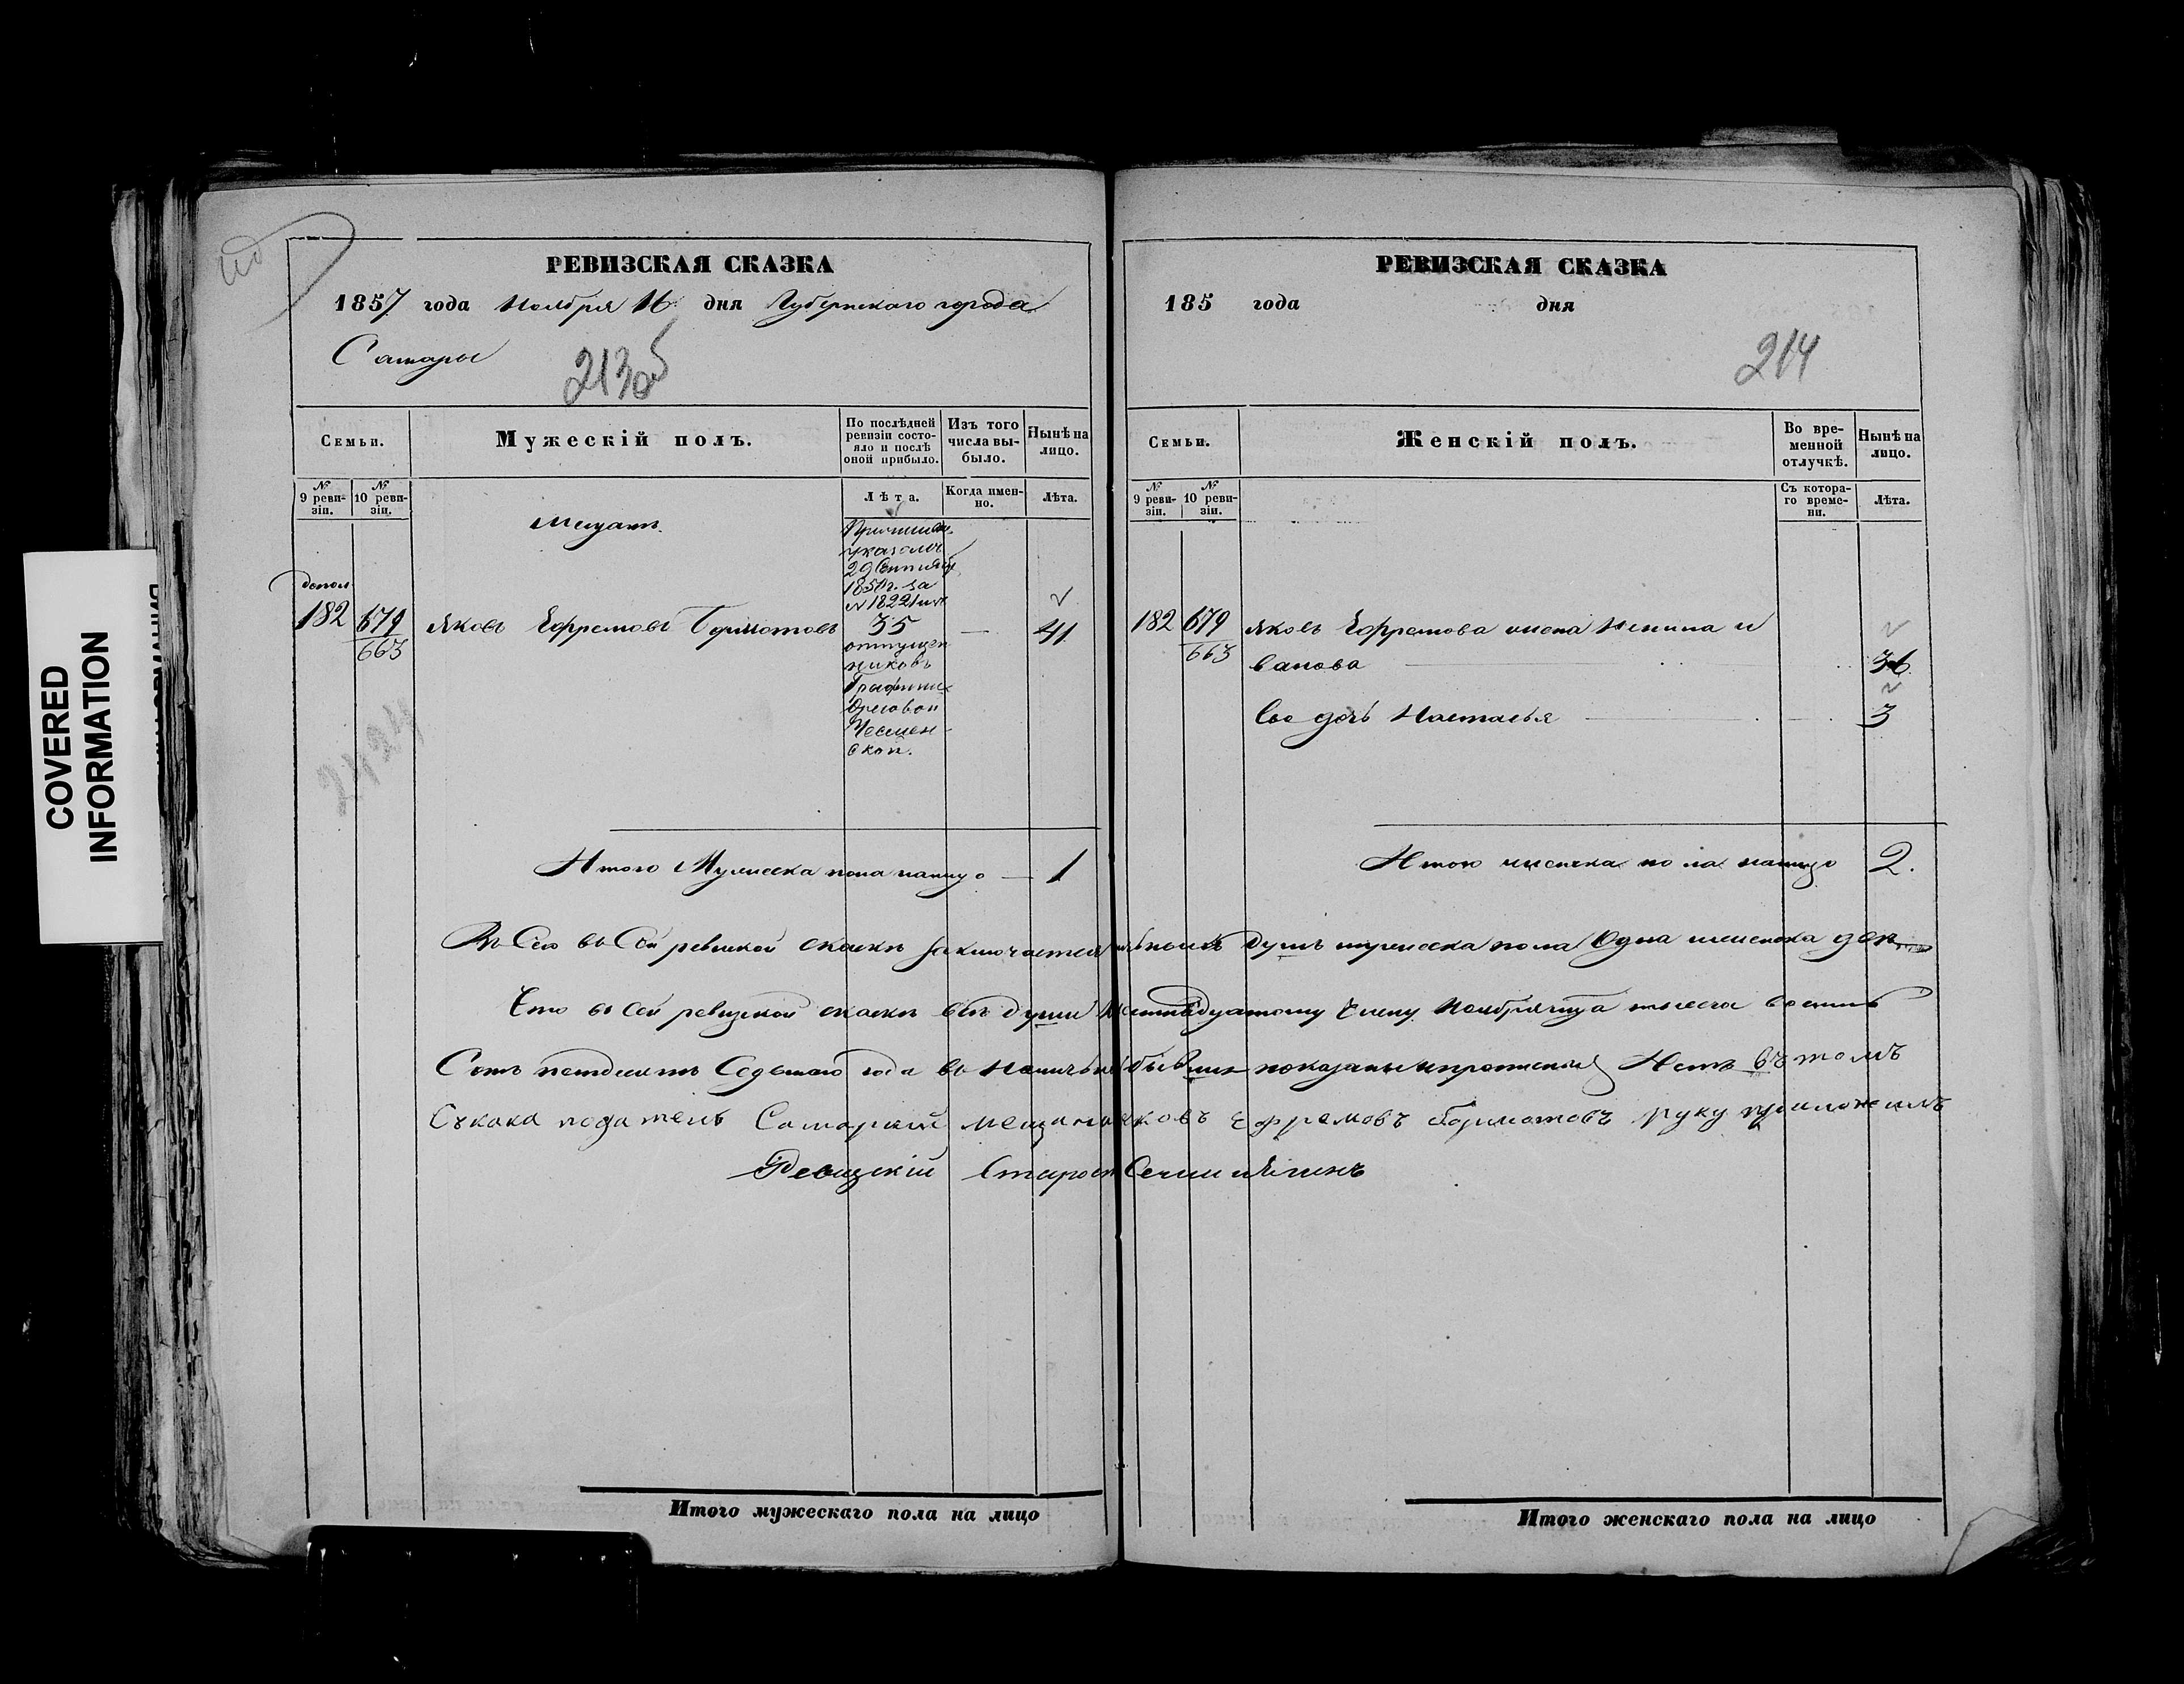 COVERED
INFORMATION
РЕВИЗСКАЯ СКАЗКА
1857 года Ноября 16 дня Губернского города
Самары
213 об
Семьи.
Мужескій полъ.
По послѣдней ревизіи состояло и послѣ оной прибыло.
Изъ того числа выбыло.
Нынѣ на лицо.
№ 9 ревизіи.
№ 10 ревизіи.
Лѣта.
Когда именно.
Лѣта.
Мещане
Причислен
указомъ
29 Сентября
за
№ 18221
допол
182 679 Яковъ Ефремовъ Бориотовъ 35 — 41
663
отпущен
никовъ
Графини
Орловой
Чесмен
ской.
Итого Мужеска пола налицо — 1
РЕВИЗСКАЯ СКАЗКА
185 года дня
214
Семьи.
Женскій полъ.
Во временной отлучкѣ.
Нынѣ на лицо.
№ 9 ревизіи.
№ 10 ревизіи.
Съ котораго времени.
Лѣта.
182 679 Якова Ефремова жена Ненила И
663 ванова 36
Его дочь Настасья 3
Итого женска пола налицо 2.
Всего въ Сей ревизской сказкѣ заключается наличныхъ душъ мужеска пола Одна женска две
Что въ сей ревизской сказкѣ все души Шестнадцатому Числу Ноября тысяча восемь
Сотъ пятдесятъ Седьмаго года въ Наличности бывшия показаны и прописныхъ Нетъ въ томъ
Скаска податель Самарский мещанин Яковъ Ефремовъ Бориотовъ руку приложилъ
Ревизский Староста
Итого мужескаго пола на лицо
Итого женскаго пола на лицо